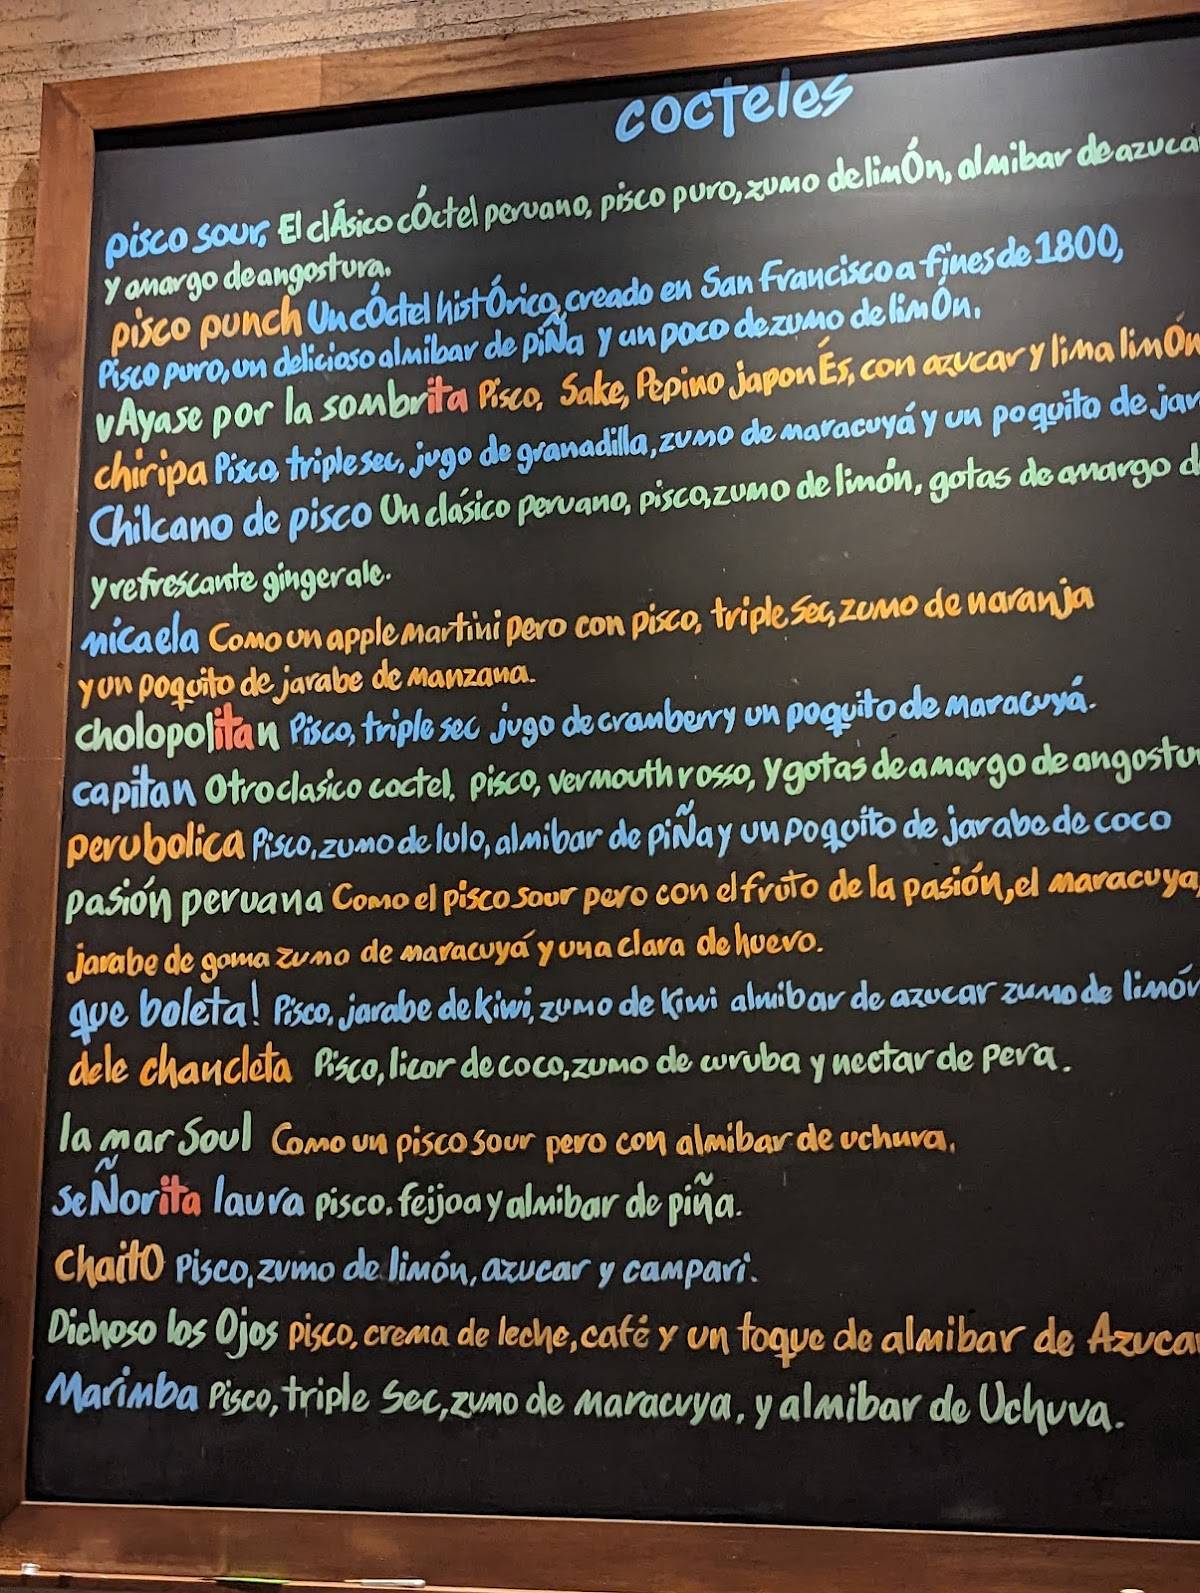 cocteles
pisco sour, El clÁsico cÓctel peruano, pisco puro, zumo de limÓn, almibar de azuca
y amargo de angostura.
pisco punch Un cÓctel histÓrico, creado en San Francisco a fines de 1800,
Pisco puro, un delicioso almibar de piÑa y un poco de zumo de limÓn.
vAyase por la sombrita Pisco, Sake, Pepino japonÉs, con azucar y lima limÓn
chiripa Pisco, triple sec, jugo de granadilla, zumo de maracuyá y un poquito de jar
Chilcano de pisco Un clásico peruano, pisco, zumo de limón, gotas de amargo d
y refrescante gingerale.
micaela Como un apple martini pero con pisco, triple sec, zumo de naranja
y un poquito de jarabe de manzana.
cholopolitan Pisco, triple sec jugo de cramberry un poquito de maracuyá.
capitan Otro clasico coctel, pisco, vermouth rosso, y gotas de amargo de angostu
perubolica Pisco, zumo de lulo, almibar de piÑa y un poquito de jarabe de coco
pasión peruana Como el pisco sour pero con el fruto de la pasión, el maracuya,
jarabe de goma zumo de maracuyá y una clara de huevo.
que boleta! Pisco, jarabe de kiwi, zumo de kiwi almibar de azucar zumo de limón
dele chancleta Pisco, licor de coco, zumo de curuba y nectar de pera.
la mar Soul Como un pisco sour pero con almibar de uchuva.
seÑorita laura pisco, feijoa y almibar de piña.
ChaitO Pisco, zumo de limón, azucar y campari.
Dichoso los Ojos pisco, crema de leche, café y un toque de almibar de Azuca
Marimba Pisco, triple Sec, zumo de maracuya, y almibar de Uchuva.